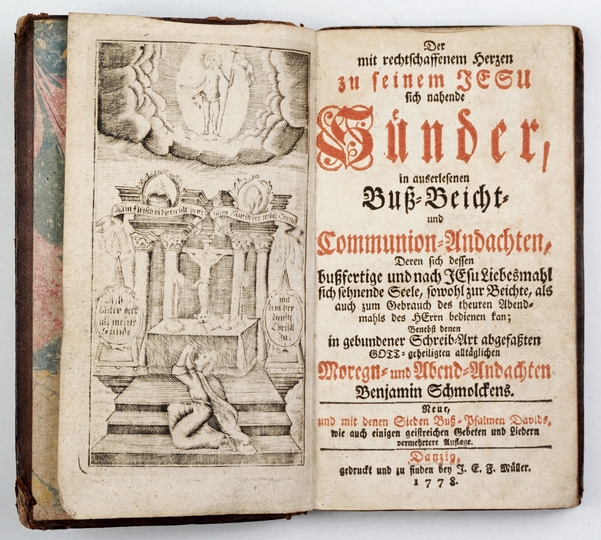 Der
mit rechtschaffenem Herzen
zu seinem JESU
sich nahende
Sünder,
in auserlesenen
Buß-Beicht-
und
Communion-Andachten,
Deren sich dessen
bußfertige und nach JEsu Liebesmahl
sich sehnende Seele, sowohl zur Beichte, als
auch zum Gebrauch des theuren Abend-
mahls des HErrn bedienen kan;
Benebst denen
in gebundener Schreib-Art abgefaßten
GOTT-geheiligten alltäglichen
Moregn- und Abend-Andachten
Benjamin Schmolckens.
Neue,
und mit denen Sieben Buß-Psalmen Davids,
wie auch einigen geistreichen Gebeten und Liedern
vermehrtere Auflage.
Danzig,
gedruckt und zu finden bey J. E. F. Müller.
1778.